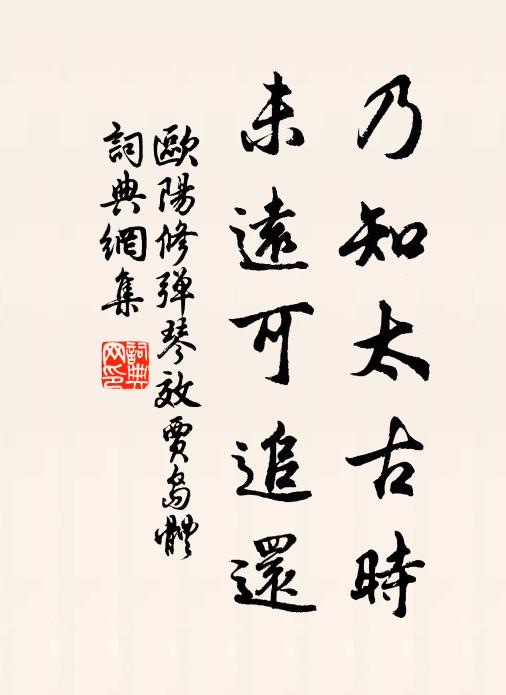 乃知太古時
未遠可追還
歐陽修弹琴效賈島體
詞典網集
詞典
网印